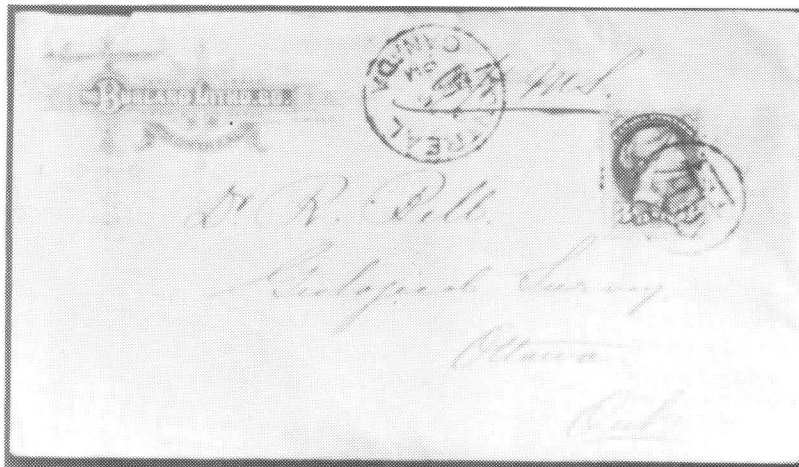 BURLAND LITHO. CO.
MONTREAL
CANADA
Dr R. Bell.
Geological Survey
Ottawa
Ont.